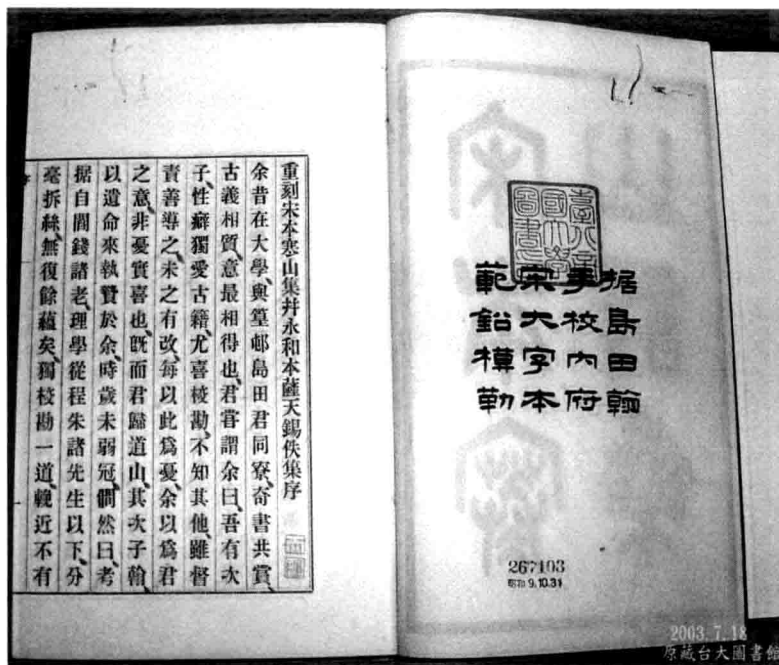 据島田翰
手校内府
宋大字本
範鉛樸勒
臺北帝
國大學
圖書印
267103
昭和 9.10.31
重刻宋本寒山集幷永和本薩天錫佚集序
余昔在大學、與篁邨島田君同寮、奇書共賞、
古義相質、意最相得也、君嘗謂余曰、吾有次
子、性癖獨愛古籍、尤喜校勘、不知其他、雖督
責善導之、未之有改、每以此爲憂、余以爲君
之意、非憂實喜也、既而君歸道山、其次子翰、
以遺命來執贄於余、時歲未弱冠、僩然曰、考
据自閻錢諸老、理學從程朱諸先生以下、分
毫拆絲、無復餘蘊矣、獨校勘一道、輓近不有
2003.7.18
原藏台大圖書館